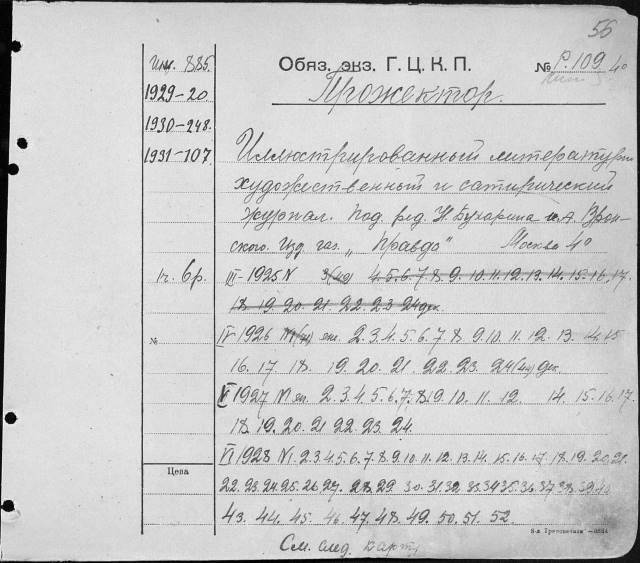 56
Обяз. экз. Г. Ц. К. П. № Р.109 4°
Прожектор.
Инв. 885.
1929-20
1930-248.
1931-107.
Иллюстрированный литературн
художественный и сатирический
журнал. Под. ред. Н. Бухарина и А. Врон-
ского. Изд. газ. „Правда" Москва 4°
1г. 6р.
III-1925 N 4. 5. 6. 7. 8. 9. 10. 11. 12. 13. 14. 15. 16. 17.
18. 19. 20. 21. 22. 23. 24 дек.
№
IV 1926 N1 ян. 2. 3. 4. 5. 6. 7. 8. 9. 10. 11. 12. 13. 14. 15
16. 17. 18. 19. 20. 21. 22. 23. 24 дек.
V 1927 N1 ян. 2. 3. 4. 5. 6. 7. 8. 9. 10. 11. 12. 14. 15. 16. 17.
18. 19. 20. 21. 22. 23. 24.
VI 1928 N1. 2. 3. 4. 5. 6. 7. 8. 9. 10. 11. 12. 13. 14. 15. 16. 17. 18. 19. 20. 21.
Цена
22. 23. 24. 25. 26. 27. 28. 29. 30. 31. 32. 33. 34. 35. 36. 37. 38. 39. 40
43. 44. 45. 46. 47. 48. 49. 50. 51. 52.
См. след. карт.